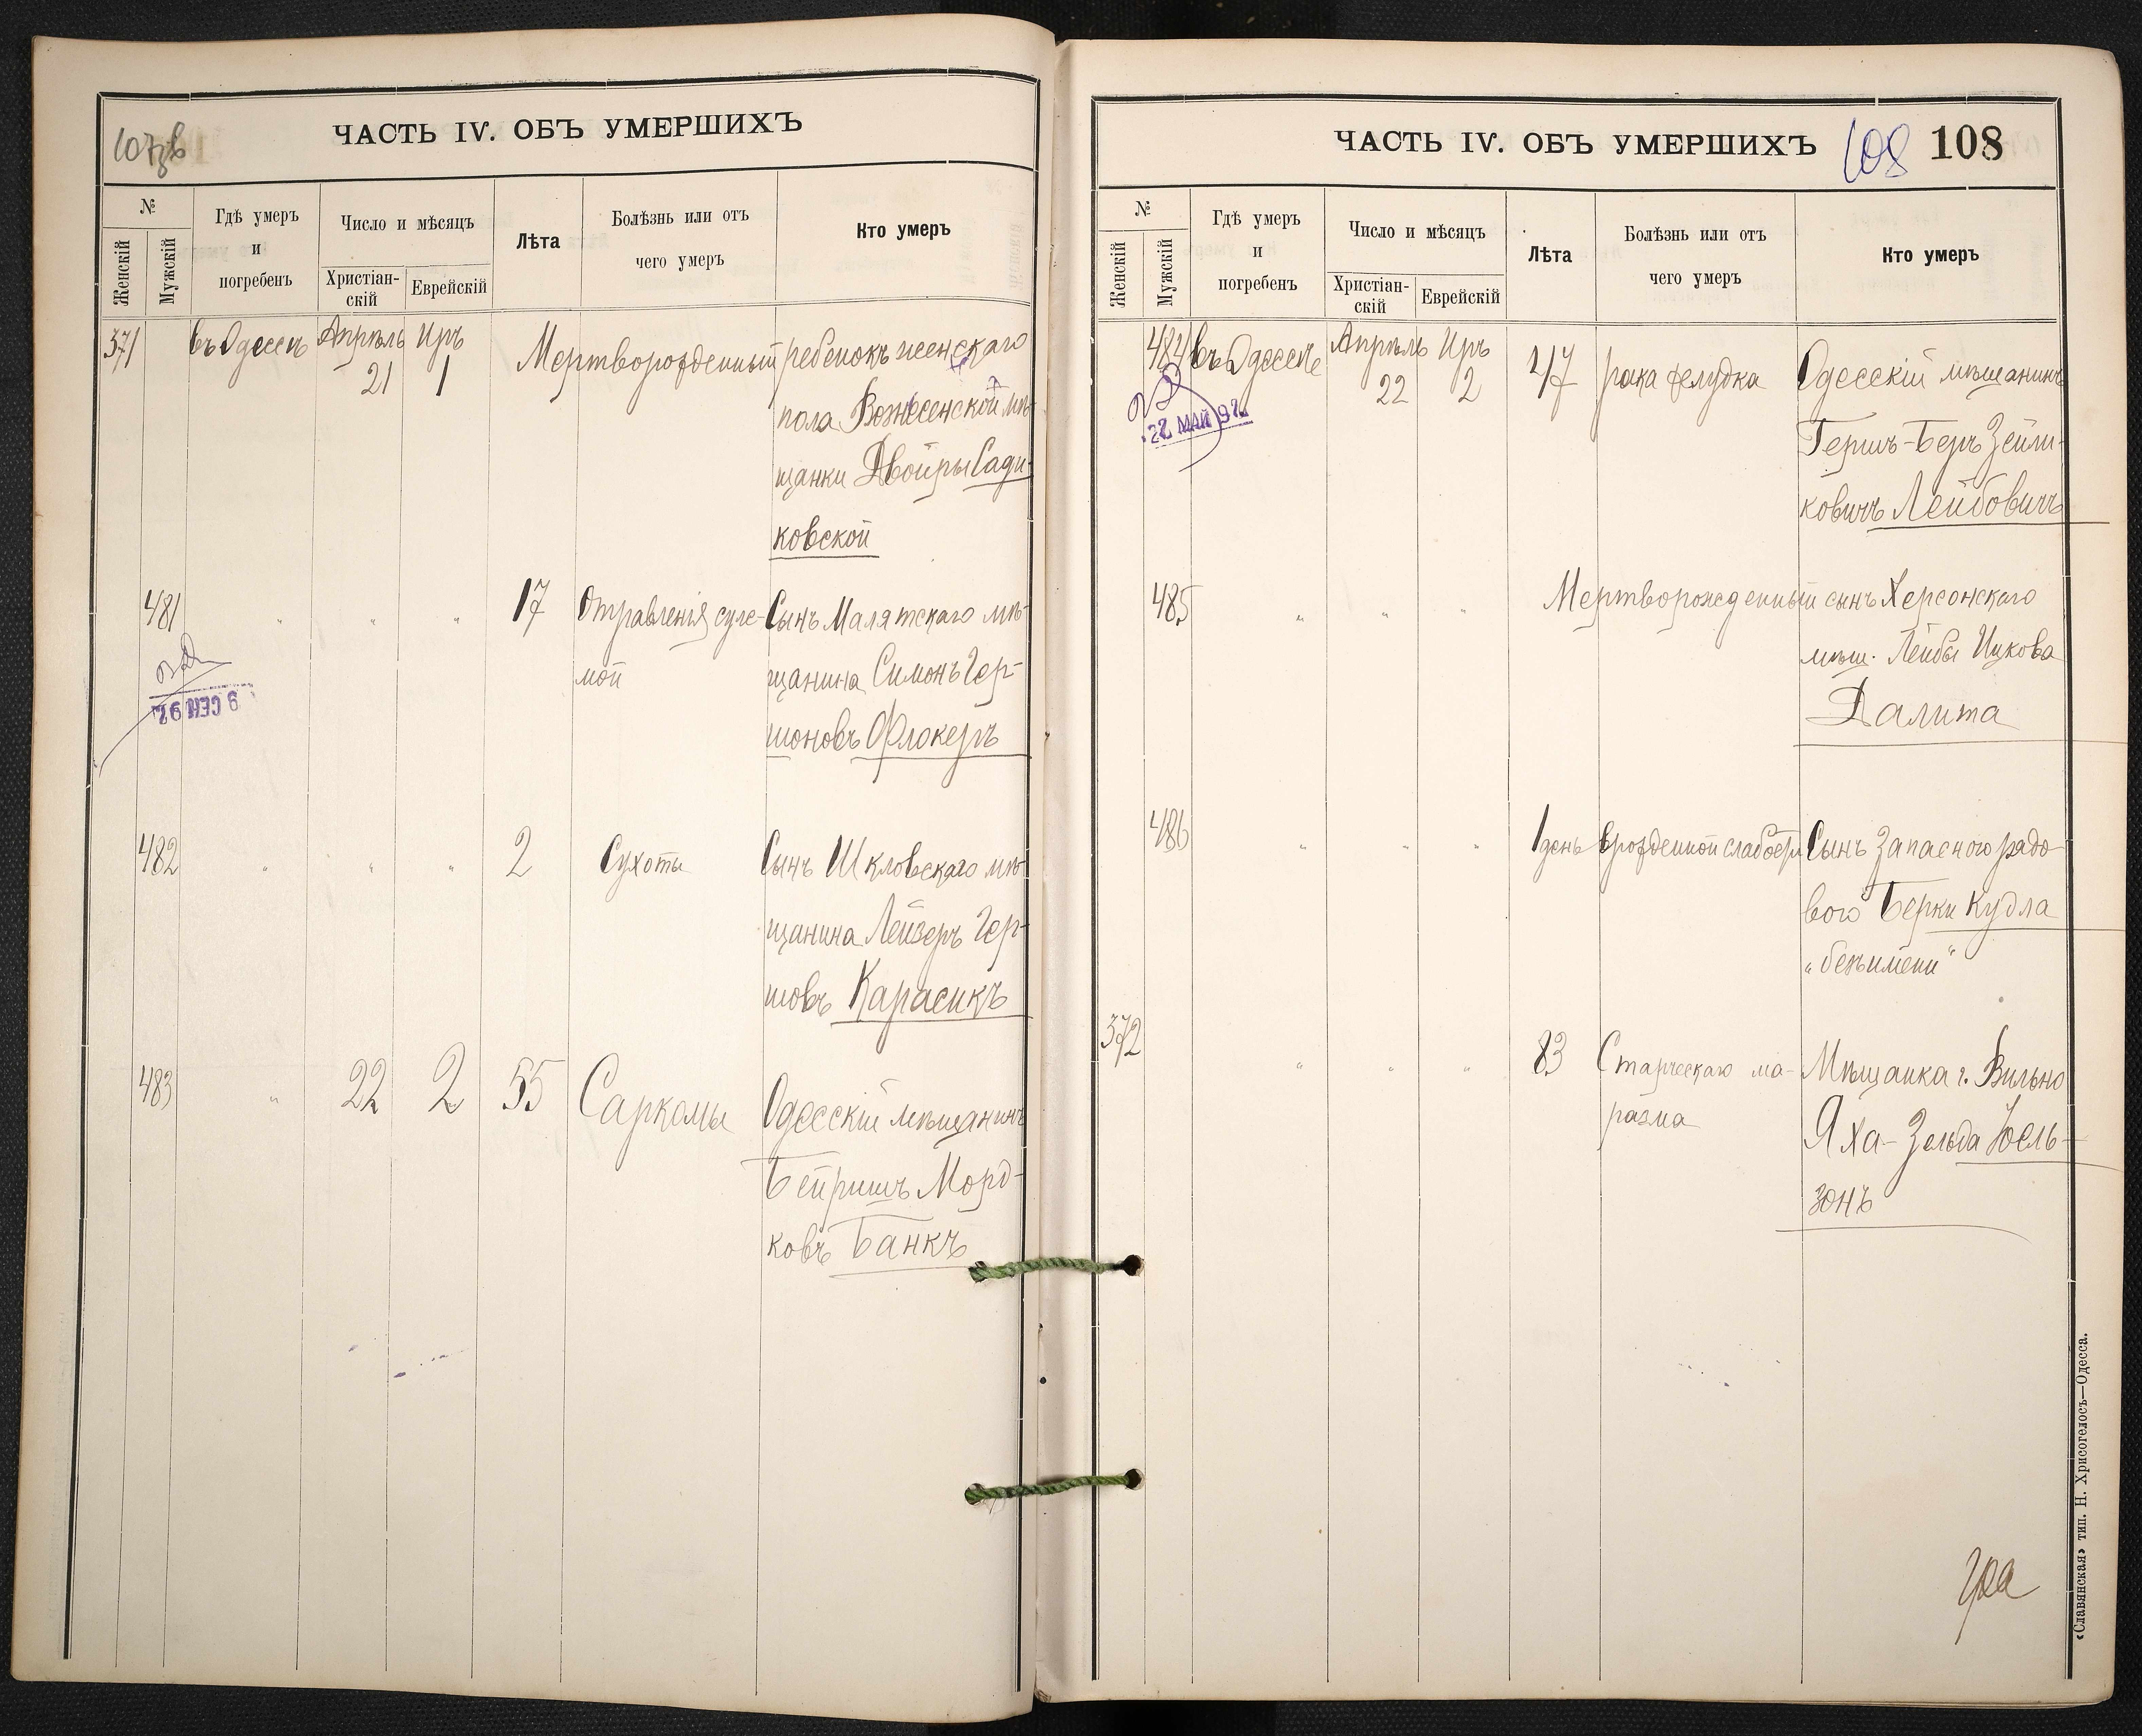 107об
ЧАСТЬ IV. ОБЪ УМЕРШИХЪ
№
Женскій
Мужскій
Гдѣ умеръ
и
погребенъ
Число и мѣсяцъ
Христіан-
скій
Еврейскій
Лѣта
Болѣзнь или отъ
чего умеръ
Кто умеръ
371 въ Одессѣ Апрѣль Иръ Мертворожденный ребенокъ женскаго
21 1
пола Вознесенской мѣ-
щанки Двойры Сади-
ковской
481 " " " 17 Отравленія суле- Сынъ Малятскаго мѣ-
мой щанина Симонъ Гер-
шоновъ Флокеръ
9 СЕН 92
482 " " " 2 Сухоты Сынъ Шкловскаго мѣ-
щанина Лейзеръ Гер-
шовъ Карасикъ
483 " 22 2 55 Саркомы Одесскій мѣщанинъ
Бейришъ Морд-
ковъ Банкъ
ЧАСТЬ IV. ОБЪ УМЕРШИХЪ 108 108
№
Женскій
Мужскій
Гдѣ умеръ
и
погребенъ
Число и мѣсяцъ
Христіан-
скій
Еврейскій
Лѣта
Болѣзнь или отъ
чего умеръ
Кто умеръ
484 въ Одессѣ Апрѣль Иръ 47 рака желудка Одесскій мѣщанинъ
22 2
22 МАЙ 92
Гершъ-Беръ Зейли-
ковичъ Лейбовичъ
485 " " " Мертворожденный сынъ Херсонскаго
мѣщ. Лейбы Ицкова
Далита
486 " " " 1 день врожденной слабости Сынъ Запасного рядо-
вого Берки Кудла
"безъ имени"
372 " " " 83 Старческаго ма- Мѣщанка г. Вильно
разма Яха-Зельда Іоель-
зонъ
«Славянская» тип. Н. Хрисогелосъ—Одесса.